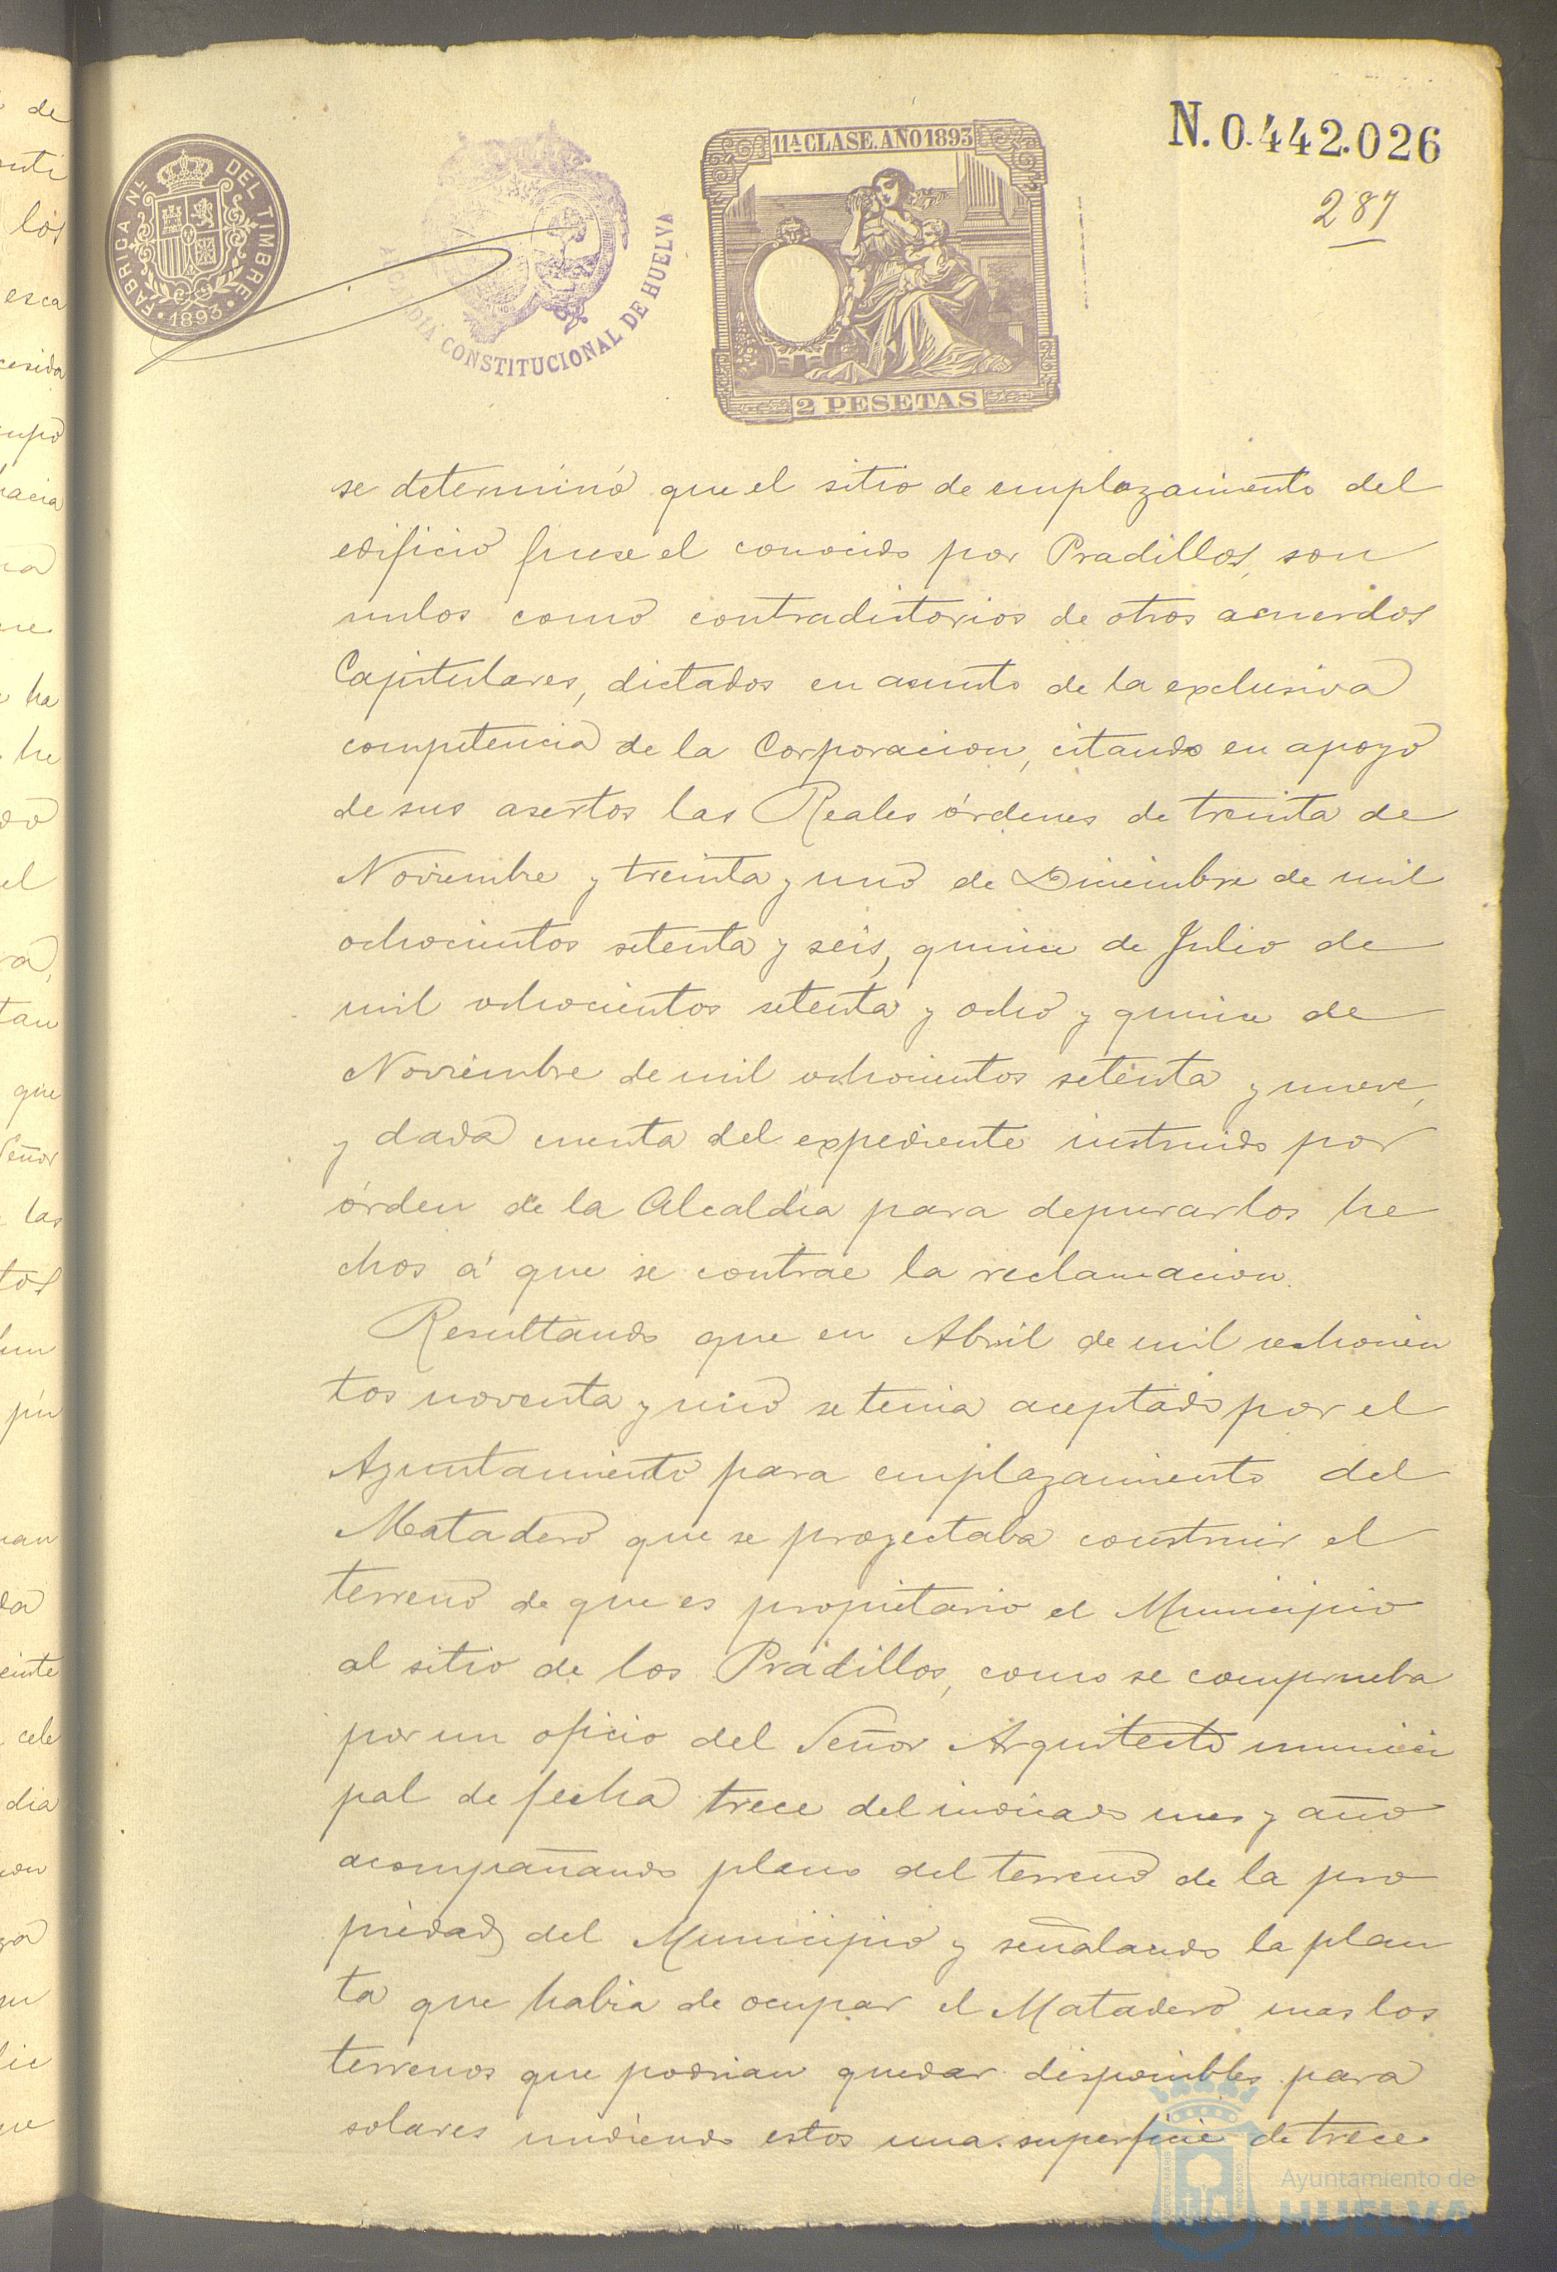 N. 0.442.026
287
FABRICA NL. DEL TIMBRE
1893
ALCALDIA CONSTITUCIONAL DE HUELVA
11ª CLASE. AÑO 1893
2 PESETAS
se determinó que el sitio de emplazamiento del
edificio fuese el conocido por Pradillos, son
nulos como contradictorios de otros acuerdos
Capitulares, dictados en asunto de la exclusiva
competencia de la Corporacion, citando en apoyo
de sus asertos las Reales órdenes de treinta de
Noviembre y treinta y uno de Diciembre de mil
ochocientos setenta y seis, quince de Julio de
mil ochocientos setenta y ocho y quince de
Noviembre de mil ochocientos setenta y nueve,
y dada cuenta del expediente instruido por
órden de la Alcaldia para depurar los he
chos á que se contrae la reclamacion.
Resultando que en Abril de mil ochocien
tos noventa y uno se tenia aceptado por el
Ayuntamiento para emplazamiento del
Matadero que se proyectaba construir el
terreno de que es propietario el Municipio
al sitio de los Pradillos, como se comprueba
por un oficio del Señor Arquitecto munici
pal de fecha trece del indicado mes y año
acompañando plano del terreno de la pro
piedad del Municipio y señalando la plan
ta que habia de ocupar el Matadero mas los
terrenos que podrian quedar disponibles para
solares midiendo estos una superficie de trece
de
los
esca
cupo
hacia
ha
he
el
tan
que
Señor
las
tos
pú
cele
dia
Ayuntamiento de
HUELVA